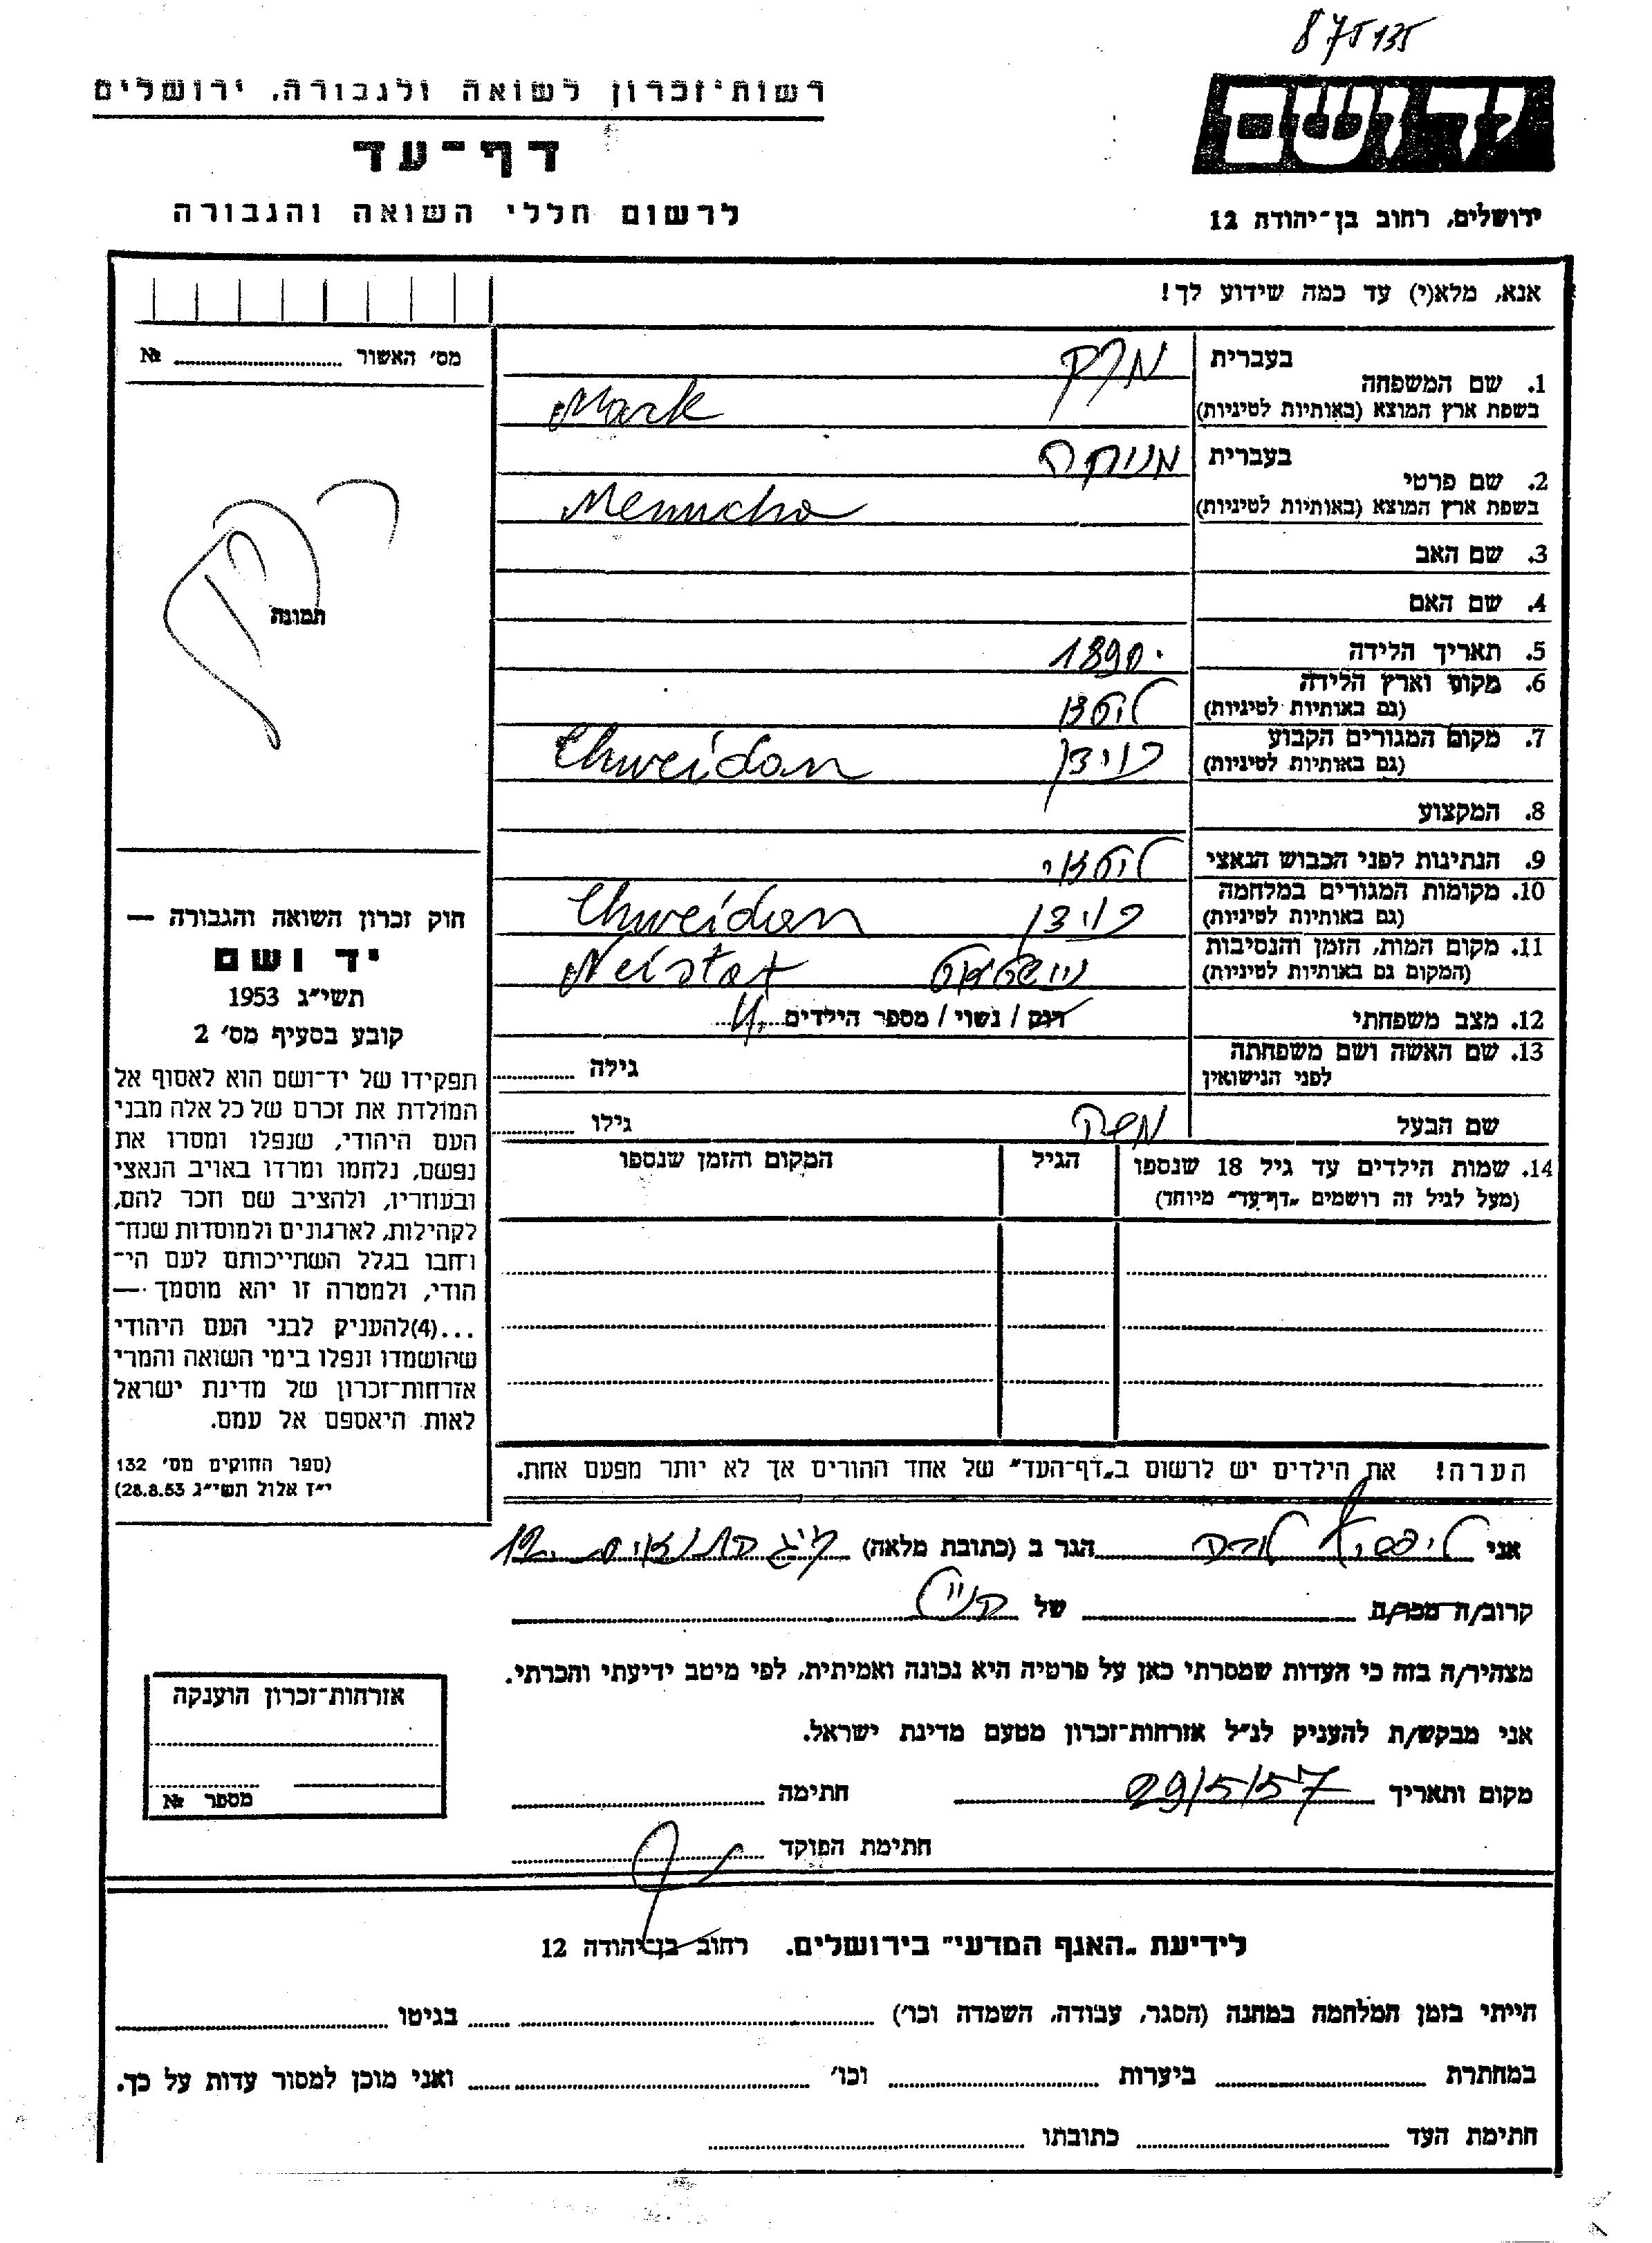 875135
רשות־זכרון לשואה ולגבורה, ירושלים
יד ושם
דף־עד
לרשום חללי השואה והגבורה
ירושלים, רחוב בן־יהודה 12
אנא, מלא(י) עד כמה שידוע לך!
מס׳ האשור № 
בעברית מרק
1. שם המשפחה
בשפת ארץ המוצא (באותיות לטיניות) Mark
בעברית מנוחה
2. שם פרטי
בשפת ארץ המוצא (באותיות לטיניות) Menucha
3. שם האב
4. שם האם
תמונה
5. תאריך הלידה 1890
6. מקום וארץ הלידה
(גם באותיות לטיניות) ליטא
7. מקום המגורים הקבוע
(גם באותיות לטיניות) Chweidan
8. המקצוע
9. הנתינות לפני הכבוש הנאצי ליטאי
10. מקומות המגורים במלחמה
(גם באותיות לטיניות) Chweidan
11. מקום המות, הזמן והנסיבות
(המקום גם באותיות לטיניות) ניישטאט Neistat
12. מצב משפחתי רוק / נשוי / מספר הילדים 4
13. שם האשה ושם משפחתה
לפני הנישואין גילה
שם הבעל משה גילו
14. שמות הילדים עד גיל 18 שנספו הגיל המקום והזמן שנספו
(מעל לגיל זה רושמים „דף־עד״ מיוחד)
חוק זכרון השואה והגבורה —
יד ושם
תשי״ג 1953
קובע בסעיף מס׳ 2
תפקידו של יד־ושם הוא לאסוף אל
המולדת את זכרם של כל אלה מבני
העם היהודי, שנפלו ומסרו את
נפשם, נלחמו ומרדו באויב הנאצי
ובעוזריו, ולהציב שם וזכר להם,
לקהילות, לארגונים ולמוסדות שנח־
רחבו בגלל השתייכותם לעם הי־
הודי, ולמטרה זו יהא מוסמך —
...(4)להעניק לבני העם היהודי
שהושמדו ונפלו בימי השואה והמרי
אזרחות־זכרון של מדינת ישראל
לאות היאספם אל עמם.
(ספר החוקים מס׳ 132
י״ז אלול תשי״ג 28.8.53)
הערה! את הילדים יש לרשום ב„דף־העד״ של אחד ההורים אך לא יותר מפעם אחת.
אני הגר ב (כתובת מלאה) 12
קרוב/ה מכר/ת של
מצהיר/ה בזה כי העדות שמסרתי כאן על פרטיה היא נכונה ואמיתית, לפי מיטב ידיעתי והכרתי.
אני מבקש/ת להעניק לנ״ל אזרחות־זכרון מטעם מדינת ישראל.
מקום ותאריך 29/5/57 חתימה
חתימת הפוקד
אזרחות־זכרון הוענקה
מספר №
לידיעת „האגף המדעי״ בירושלים. רחוב בן־יהודה 12
הייתי בזמן המלחמה במחנה (הסגר, עבודה, השמדה וכו׳) בגיטו
במחתרת ביערות וכו׳ ואני מוכן למסור עדות על כך.
חתימת העד כתובתו